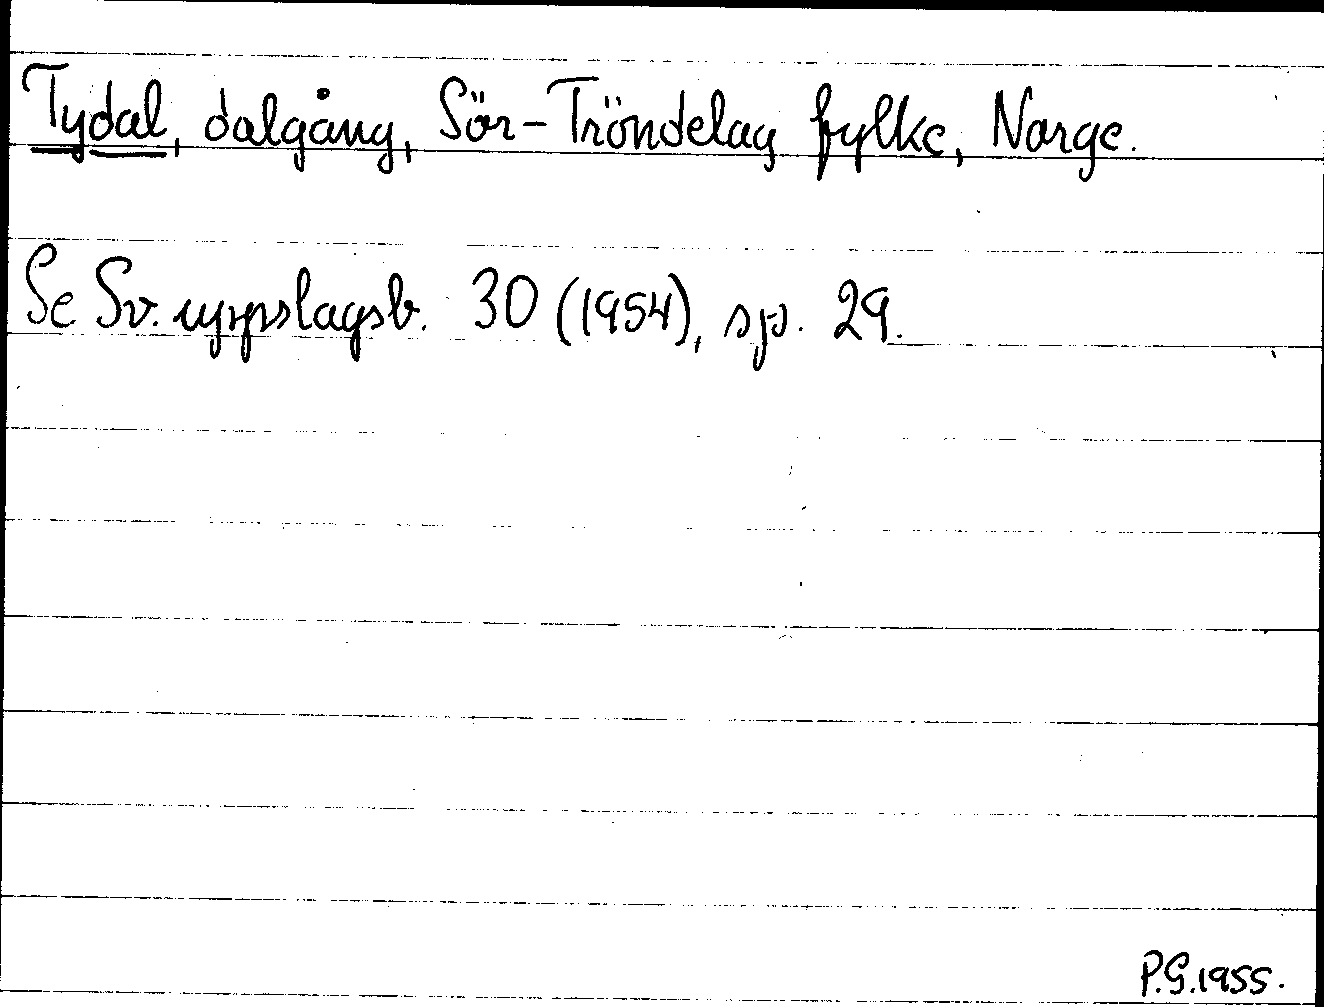 Tydal, dalgång, Sör-Tröndelag fylke, Norge.
Se Sv. uppslagsb. 30 (1954), sp. 29.
P.G.1955.